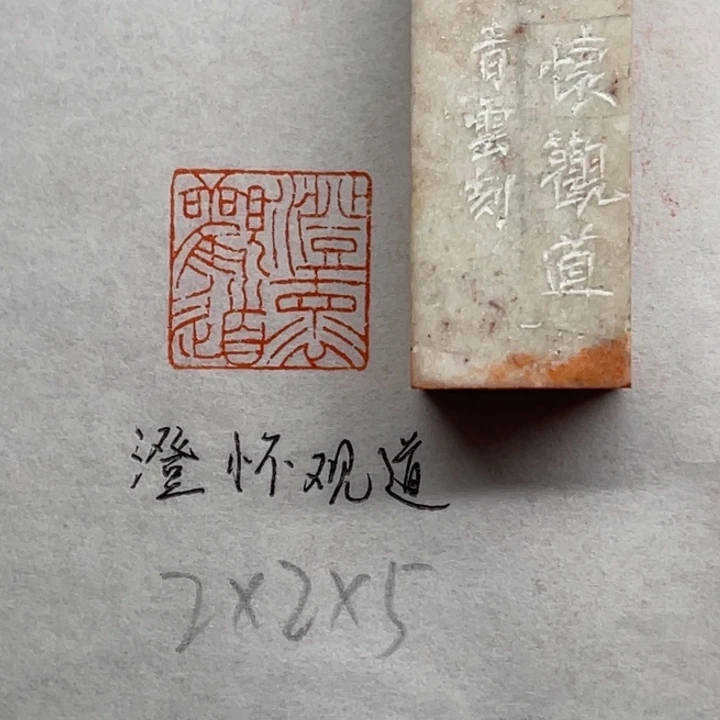 澄懷
觀道
懷觀道
青雲刻
澄怀观道
2×2×5